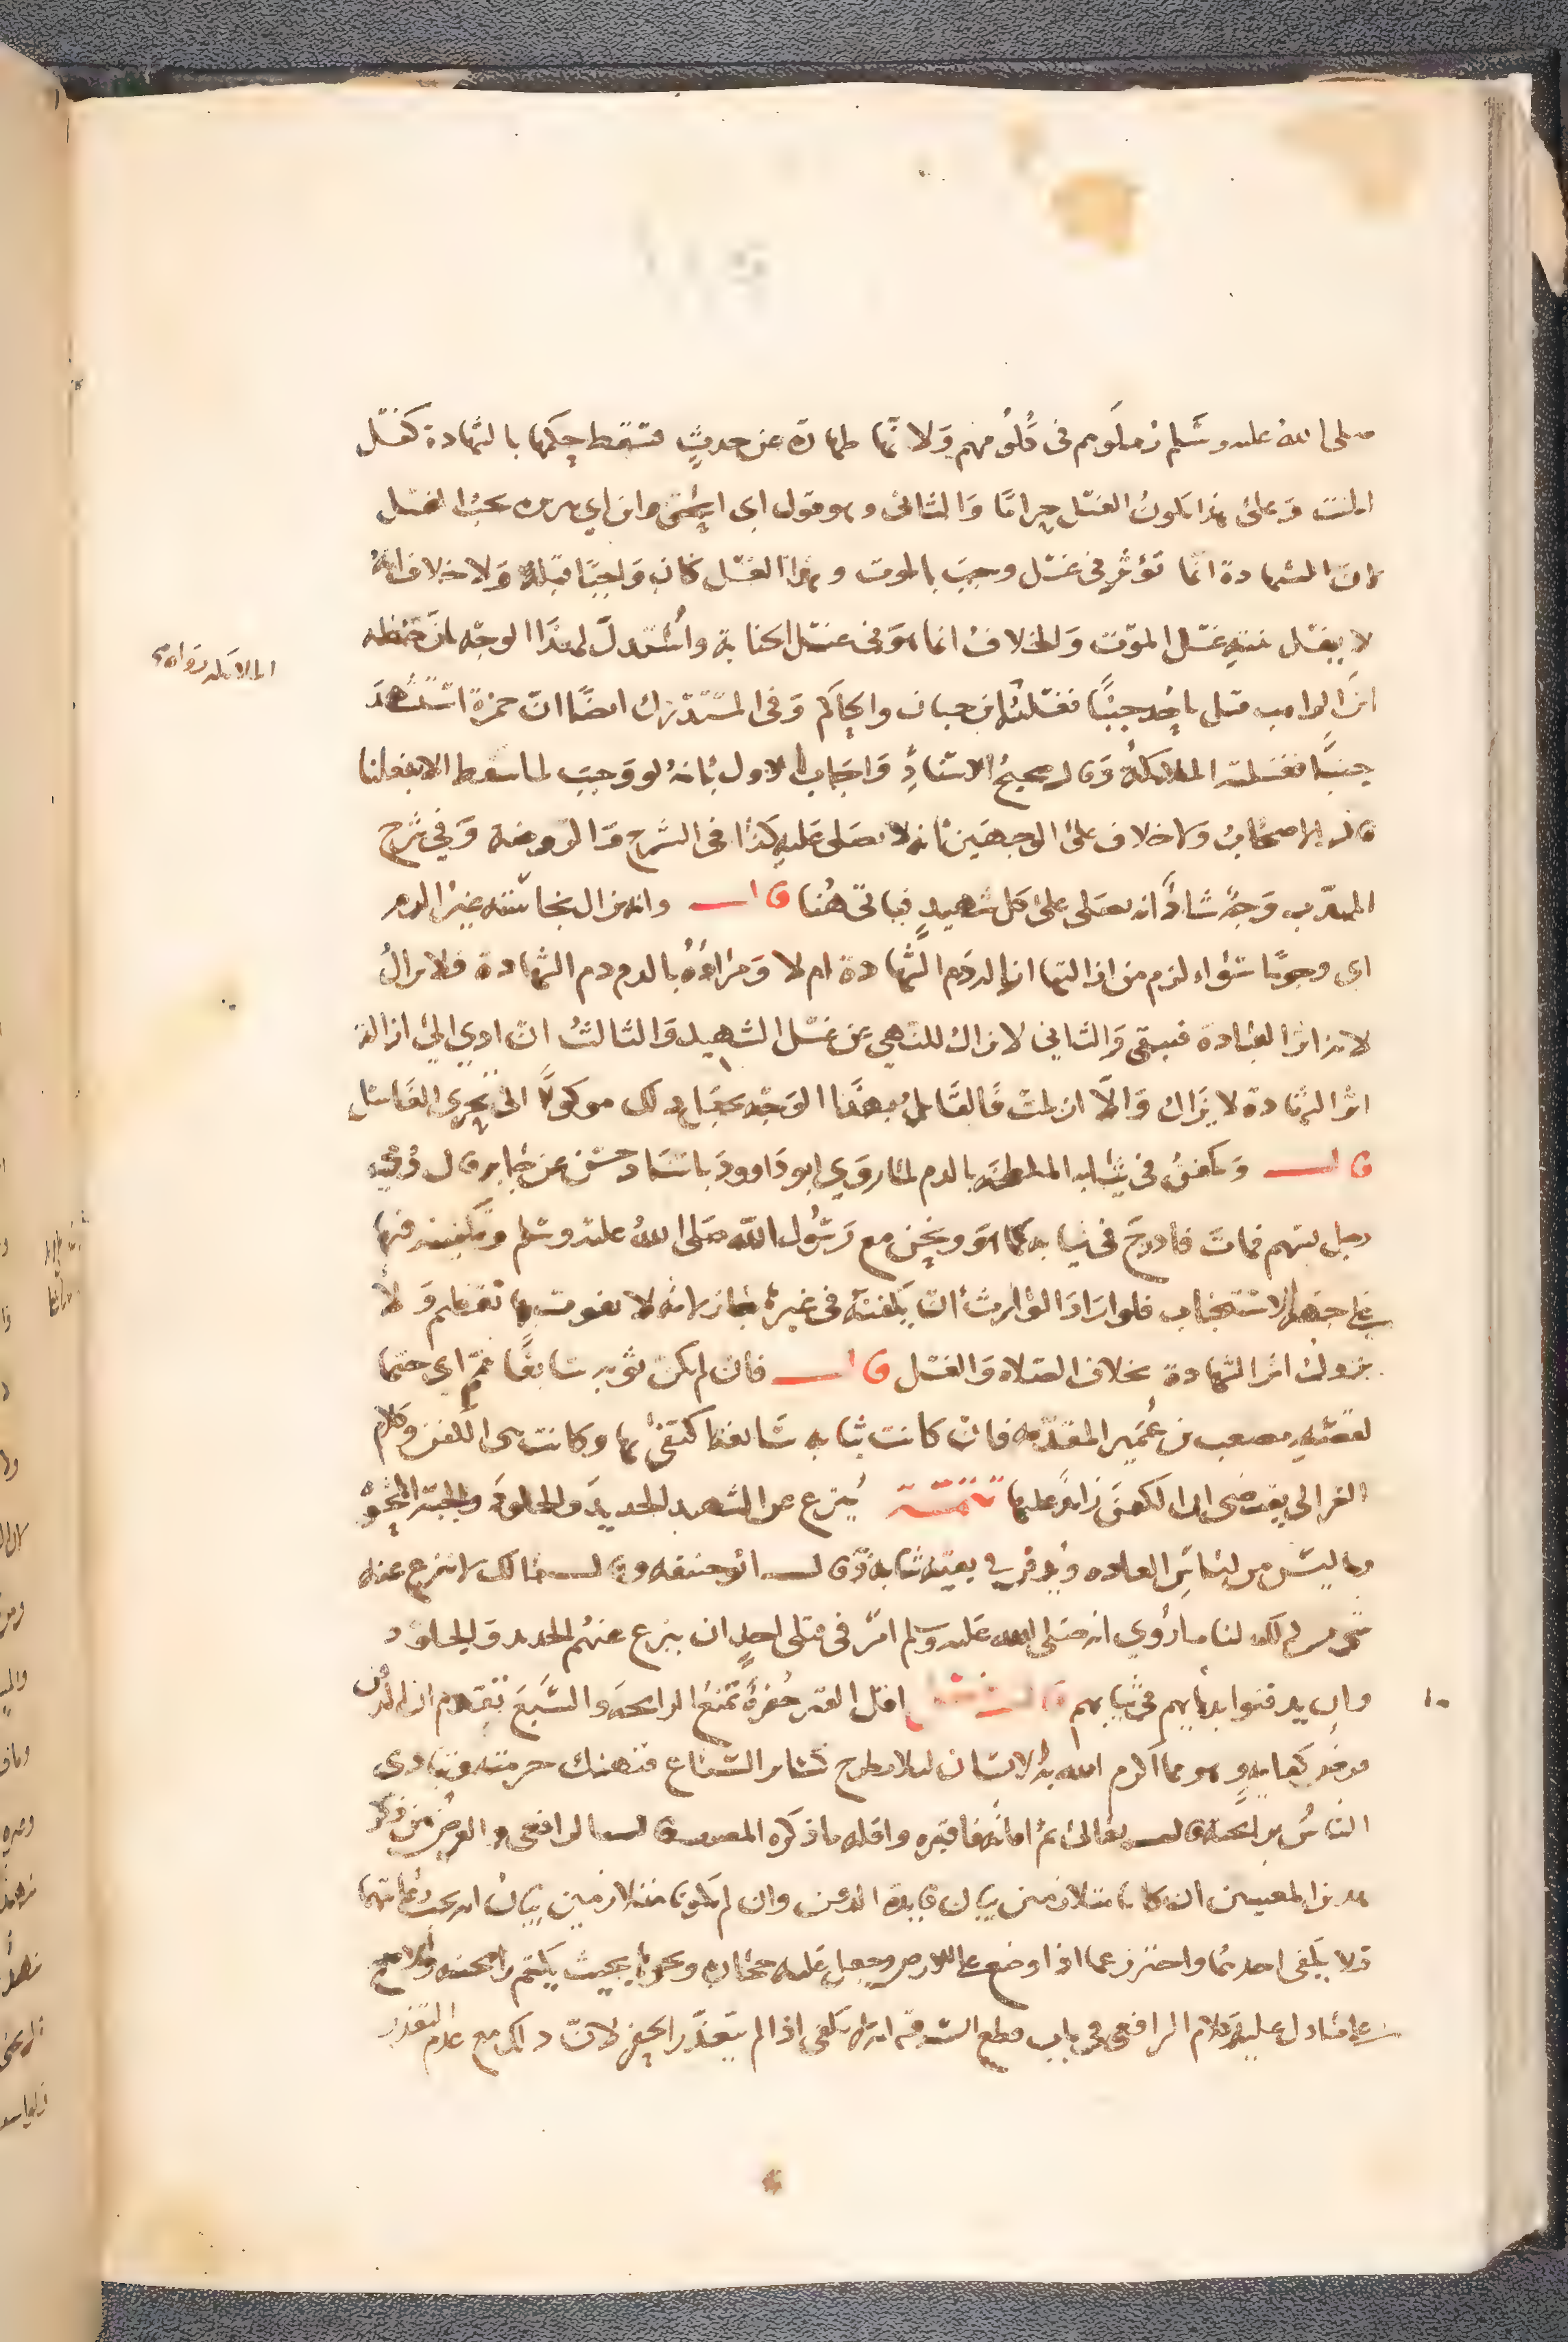 صلى الله عليه وسلم زملوهم في كلومهم ولانها طهارة عن حدث فسقط حكمها بالشهادة كغسل
الميت وعلى هذا يكون الغسل حراما والثاني وهو قول ابي اسحق وابن ابي هريرة يجب الغسل
لان الشهادة انما تؤثر في غسل وجب بالموت وهذا الغسل كان واجبا قبله ولا خلاف انه
لا يغسل بنية غسل الموت والخلاف انما هو في غسل الجنابة واستدل لهذا الوجه بان حنظلة
ابن الراهب قتل باحد جنبا فغسلته
الملائكة رواه
ابن حبان والحاكم وفي المستدرك ايضا ان حمزة استشهد
جنبا فغسلته الملائكة وقال صحيح الاسناد واجاب الاول بانه لو وجب لما سقط الا بفعلنا
قال الاصحاب ولا خلاف على الوجهين انه لا يصلى عليه كذا في الشرح والروضة وفي شرح
المهذب وجه شاذ انه يصلى على كل شهيد فياتي هنا قال وانه تزال نجاسته غير الدم
اي وجوبا سواء لزم من ازالتها ازالة دم الشهادة ام لا ومراده بالدم دم الشهادة فلا يزال
لانه اثر العبادة فيبقى والثاني لا تزال للنهي عن غسل الشهيد والثالث ان ادى الى ازالة
اثر الشهادة لا يزال والا ازيلت فالقائل بهذا الوجه يجعل ذلك موكولا الى تحري الغاسل
قال ويكفن في ثيابه الملطخة بالدم لما روى ابو داوود باسناد حسن عن جابر قال رمي
رجل بسهم فمات فادرج في ثيابه كما هو ونحن مع رسول الله صلى الله عليه وسلم وتكفينه فيها
على جهة الاستحباب فلو اراد الوارث ان يكفنه في غيرها جاز لانه لا يفوت بها تعظيم ولا
يزول اثر الشهادة بخلاف الصلاة والغسل قال فان لم يكن ثوبه سابغا تمم اي حتما
لقصة مصعب بن عمير المتقدمة فان كانت ثيابه سابغة اكتفي بها وكانت هي الكفن وكلام
الغزالي يقتضي ان الكفن زائد عليها تتمة ينزع عن الشهيد الحديد والجلود والجبة المحشوة
وما ليس من لباس العادة ويدفن في بقية ثيابه وقال ابو حنيفة وقال مالك لا ينزع عنه
شيء من ذلك لنا ما روي انه صلى الله عليه وسلم امر في قتلى احد ان ينزع عنهم الحديد والجلود
وان يدفنوا بدمائهم في ثيابهم قال فصل اقل القبر حفرة تمنع الرائحة والسبع تقدم ان الدفن
فرض كفاية وهو مما اكرم الله به الانسان لئلا يطرح كسائر السباع فتنهتك حرمته ويتاذى
الناس برائحته قال تعالى ثم اماته فاقبره واقله ما ذكره المصنف قال الرافعي والغرض من ذكر
هذين المعنيين ان كانا متلازمين بيان فايدة الدفن وان لم يكونا متلازمين بيان انه يجب رعايتهما
فلا يكفي احدهما واحترز عما اذا وضع على الارض وجعل عليه حجارة ونحوها بحيث يكتم رائحته والاصح
على ما دل عليه كلام الرافعي في باب قطع السرقة انه لا يكفي اذا لم يتعذر الحفر لان ذلك مع عدم التعذر
١٠